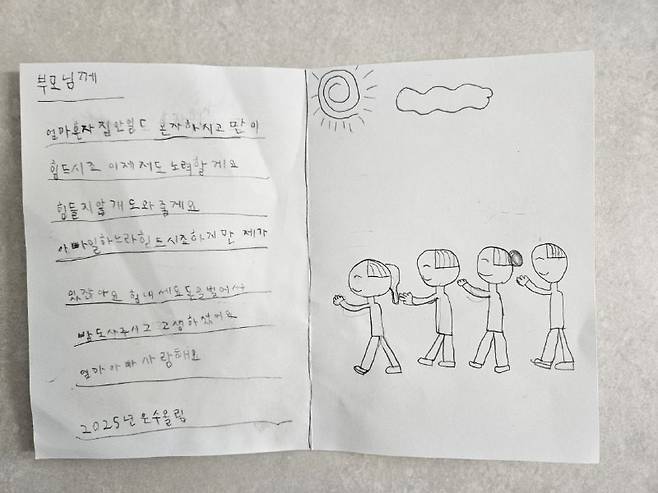 부모님께
엄마혼자 집안일도 혼자하시고 많이
힘드시죠 이제 저도 노력할게요
힘들지않개 도와줄게요
아빠일하느라힘드시죠하지만 제가
있잖아요 힘내세요돈을벌어서
밥도사주시고 고생하셨어요
엄마아빠 사랑해요
2025년은수올림